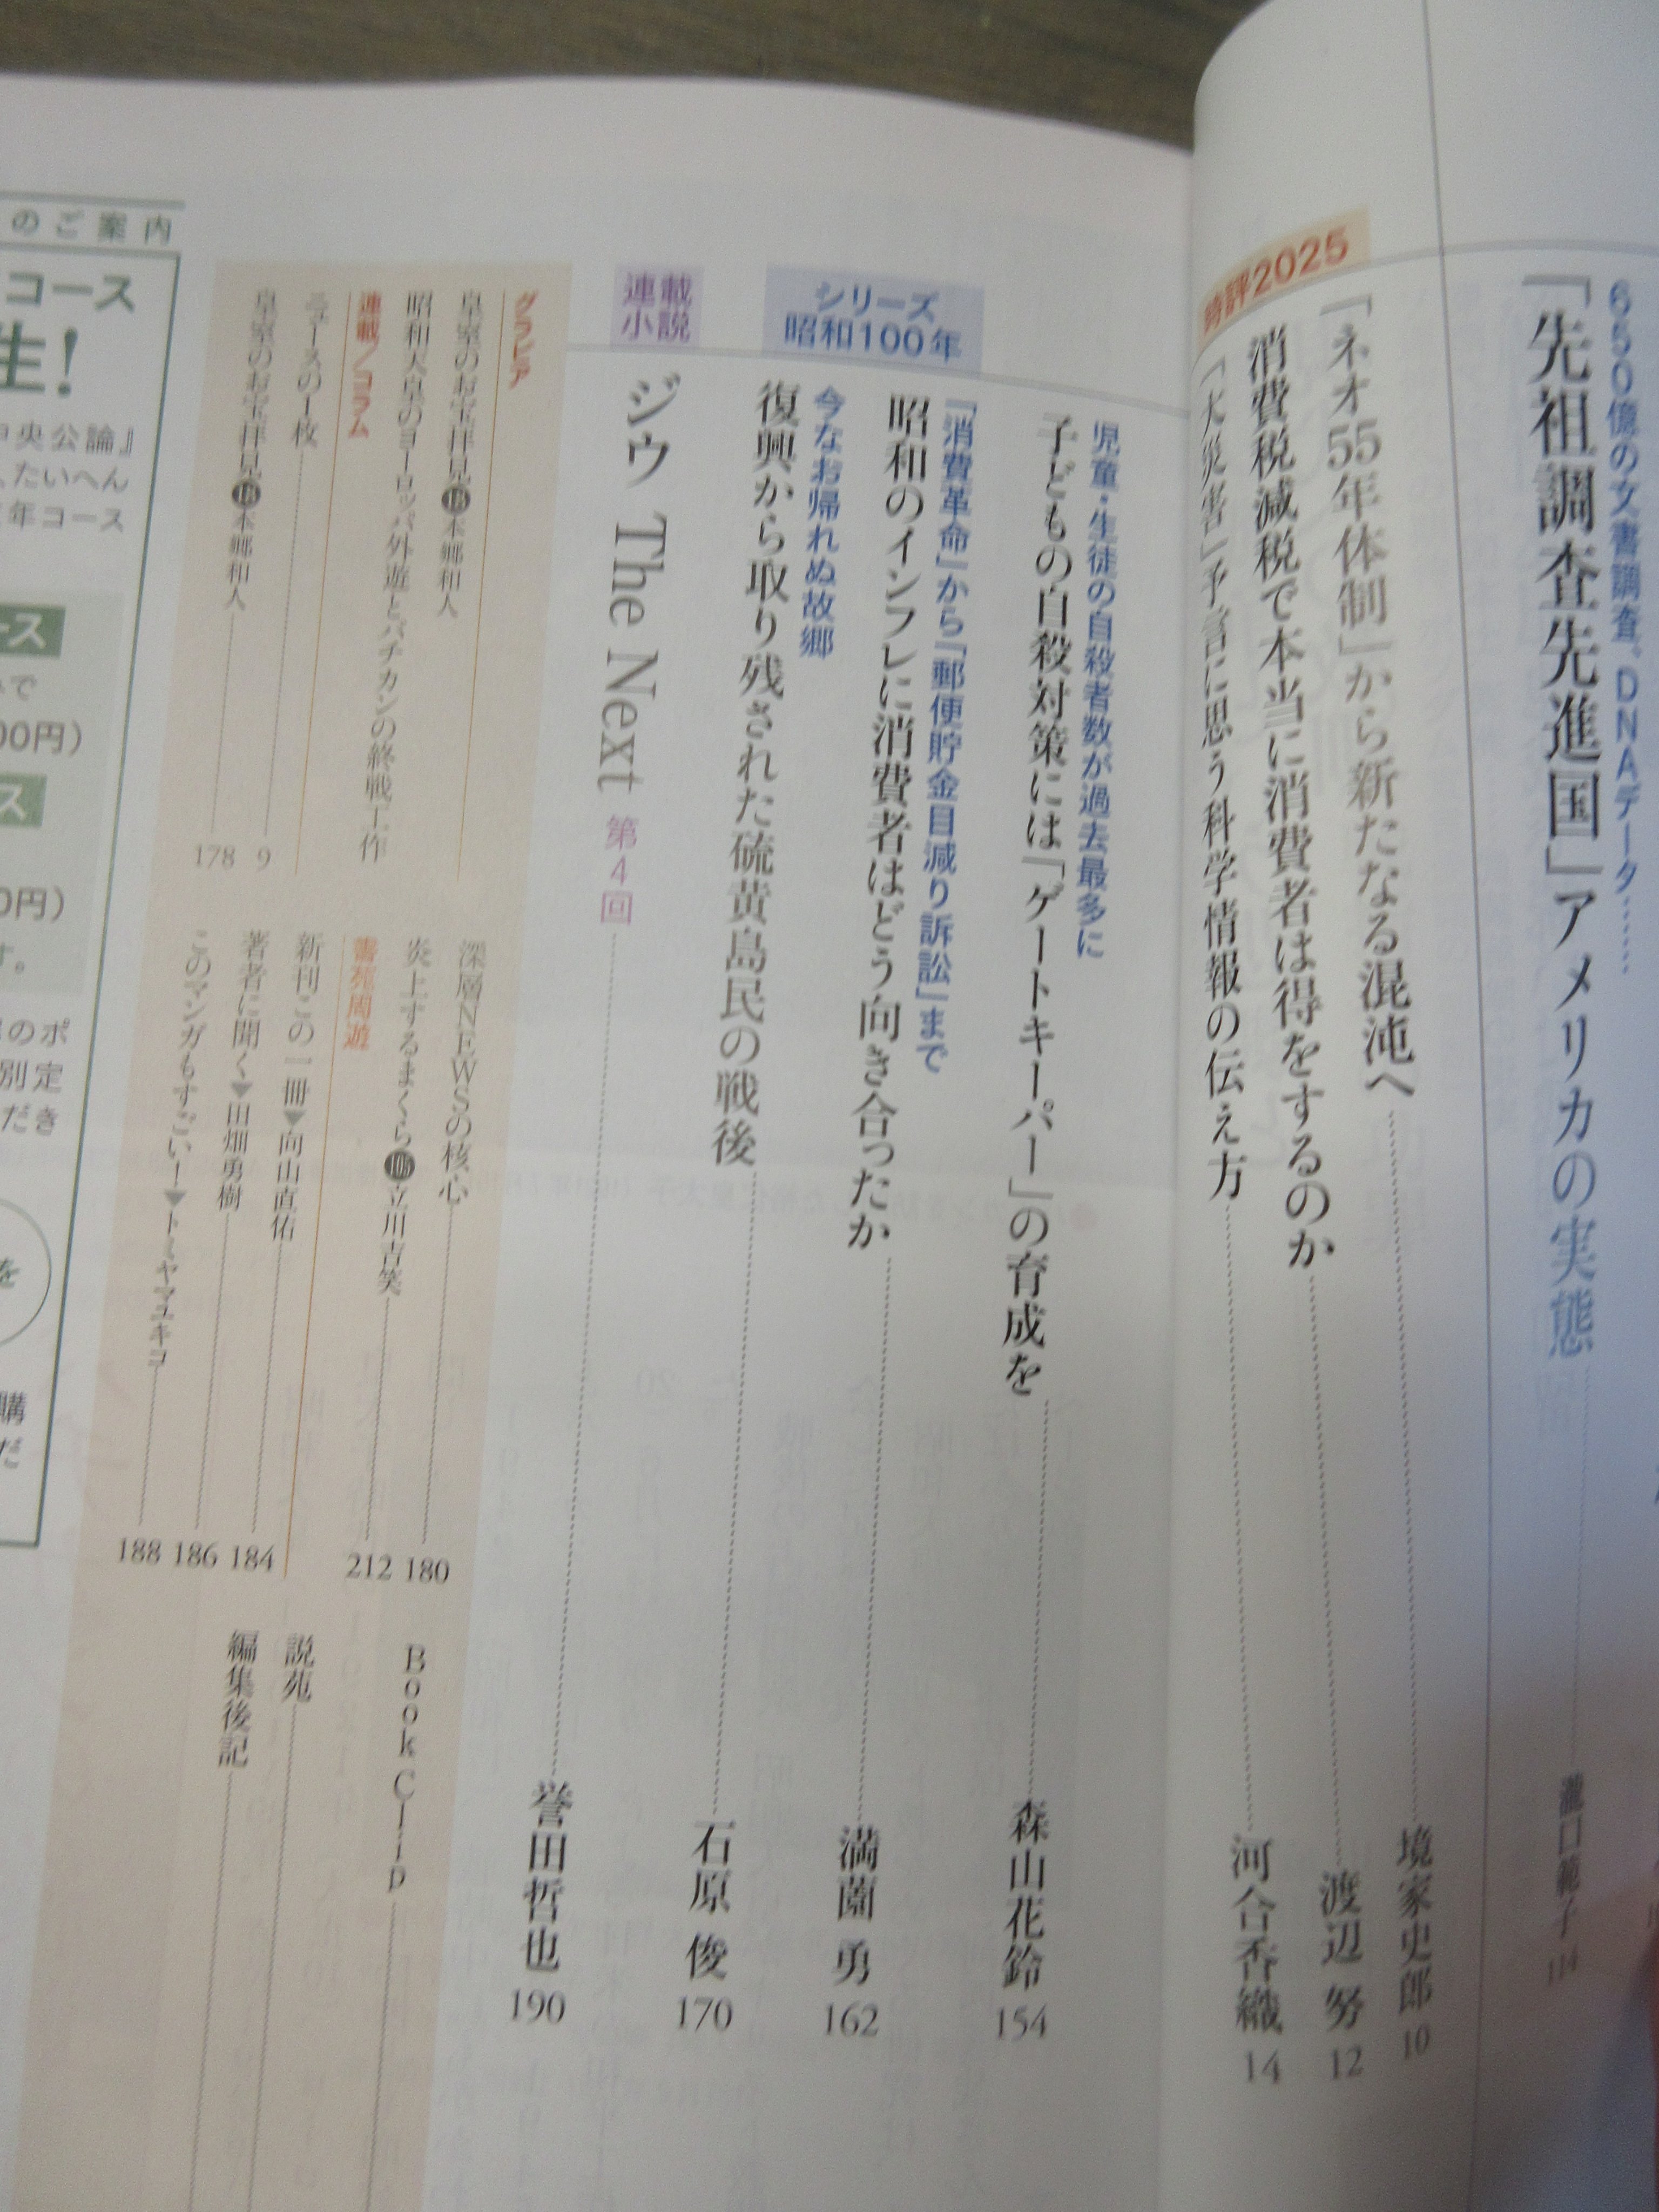 650億の文書調査、DNAデータ……
「先祖調査先進国」アメリカの実態
瀧口範子 114
時評2025
「ネオ55年体制」から新たなる混沌へ
境家史郎 10
消費税減税で本当に消費者は得をするのか
渡辺 努 12
「大災害」予言に思う科学情報の伝え方
河合香織 14
児童・生徒の自殺者数が過去最多に
子どもの自殺対策には「ゲートキーパー」の育成を
森山花鈴 154
シリーズ
昭和100年
「消費革命」から「郵便貯金目減り訴訟」まで
昭和のインフレに消費者はどう向き合ったか
満薗 勇 162
今なお帰れぬ故郷
復興から取り残された硫黄島民の戦後
石原 俊 170
連載
小説
ジウ The Next 第4回
誉田哲也 190
グラビア
皇室のお宝拝見⑱本郷和人
昭和天皇のヨーロッパ外遊とバチカンの終戦工作
連載／コラム
の一枚 9
皇室のお宝拝見⑱本郷和人 178
深層NEWSの核心 180
炎上するまくら 106 立川吉笑 212
書苑周遊
新刊この一冊▼向山直佑 184
著者に聞く▼田畑勇樹 186
このマンガもすごい！▼トミヤマユキコ 188
Book Clip
説苑
編集後記
のご案内
コース
生！
中央公論』
、たいへん
年コース
ース
で
00円）
ス
0円）
す。
のポ
別定
だき
を
購
だ